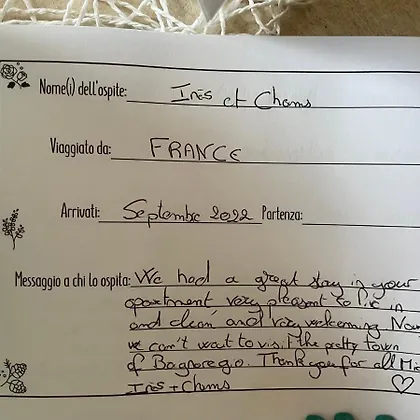 Nome(i) dell'ospite: Inès et Chams
Viaggiato da: FRANCE
Arrivati: Septembre 2022 Partenza:
Messaggio a chi lo ospita: We had a great stay in your
apartment very pleasant to live in
and clean and very welcoming
we can't wait to visit the pretty town
of Bagnorego. Thank you for all
Inès + Chams